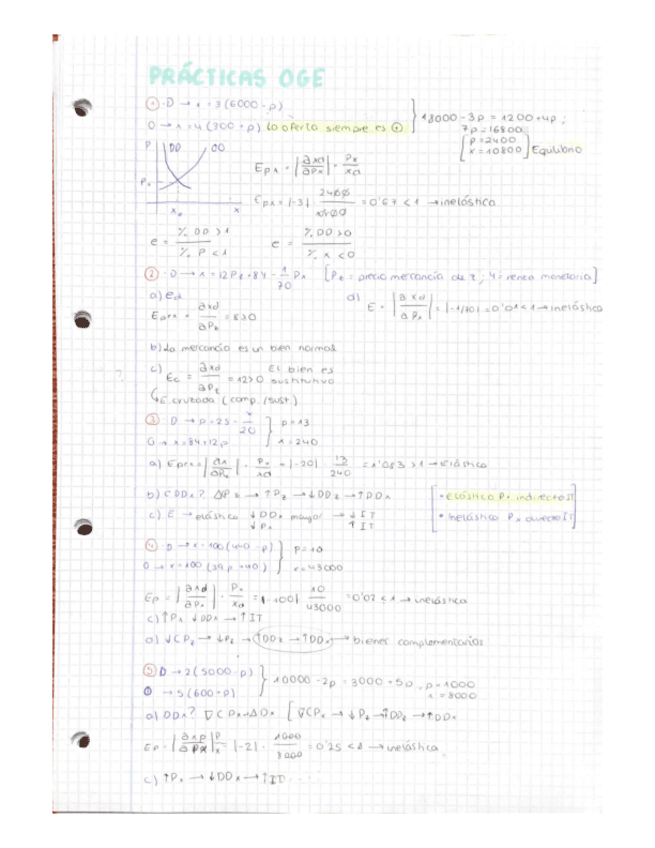 PRÁCTICAS OGE
① · D → x = 3(6000 - p)
O → x = 4(300 + p) la oferta siempre es ⊕
18000 - 3p = 1200 + 4p ;
7p = 16800
p = 2400
x = 10800 Equilibrio
P DD OO
Po
xo x
Epx = |∂xd/∂Px| · Px/xd
Epx = |-3| · 2400/10800 = 0'67 < 1 → inelástica
e = % DD > 1 / % P < 1
e = % DD > 0 / % x < 0
② · D → x = 12Pz + 8Y - 1/70 Px [Pz = precio mercancía de z ; Y = renta monetaria]
a) ed
= ∂xd = 8 > 0
b) La mercancía es un bien normal
c) Ec = ∂xd/∂Pz = 12 > 0 Es bien es sustitutivo
↳ E cruzada (comp./sust.)
d) E = |∂xd/∂Px| = = 0'01 < 1 → inelástica
③ · D → p = 25 - x/20
O → x = 84 + 12p
p = 13
x = 240
a) Epx = |∂x/∂Px| · Px/xd = |-20| · 13/240 = 1'083 > 1 → Elástica
b) ¿DDx? ΔPz → ↑Pz → ↓DDz → ↑DDx
c) E → elástica ↓DDx mayor → ↓IT
↓Px ↑IT
• elástica Px indirecto IT
• Inelástica Px directo IT
④ · D → x = 100(440 - p)
O → x = 100(39p + 40)
p = 10
x = 43000
Ep = |∂xd/∂Px| · Px/xd = |-100| 10/43000 = 0'02 < 1 → inelástica
c) ↑Px ↓DDx → ↑IT
d) ↓CPz → ↓Pz → ↑DDz → ↑DDx → bienes complementarios
⑤ D → 2(5000 - p)
O → 5(600 + p)
10000 - 2p = 3000 + 5p , p = 1000
x = 8000
a) DDx? ∇CPx → ΔOx [∇CPx → ↓Pz → ↑DDz → ↑DDx
Ep = |∂xp/∂Px| P/x = |-2| · 1000/8000 = 0'25 < 1 → inelástica
c) ↑Px → ↓DDx → ↑IT